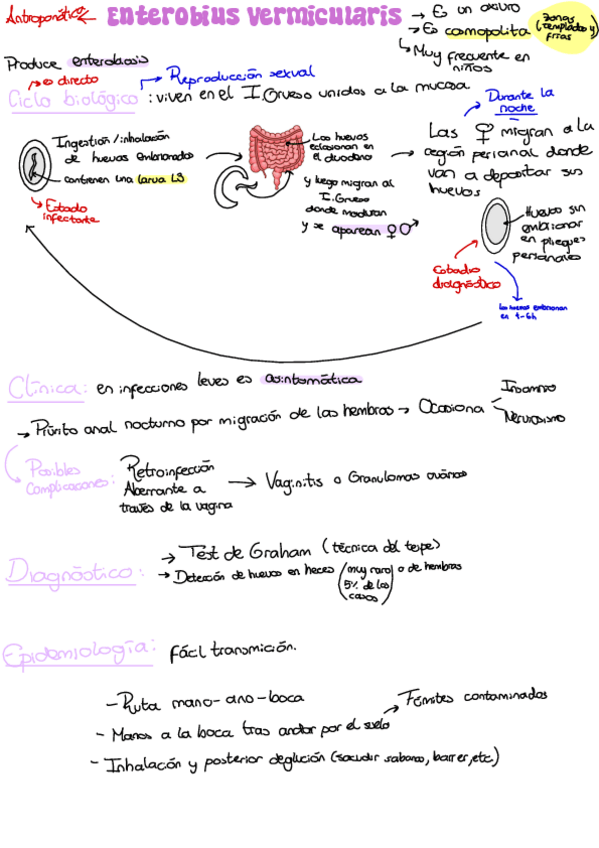 Antroponótico
Enterobius vermicularis
→ Es un oxiuro
→ Es cosmopolita (zonas templadas y frías)
→ Muy frecuente en niños
Produce enterobiosis
→ es directo
→ Reproducción sexual
Ciclo biológico: viven en el I. Grueso unidos a la mucosa
Ingestión/inhalación
de huevos embrionados
contienen una larva L3
→ Estado
infectante
Los huevos
eclosionan en
el duodeno
y luego migran al
I. Grueso
donde maduran
y se aparean ♀♂
→ Durante la
noche
Las ♀ migran a la
región perianal donde
van a depositar sus
huevos
Huevos sin
embrionar
en pliegues
perianales
Estadio
diagnóstico
Los huevos embrionan
en 1-6h
Clínica: en infecciones leves es asintomática
→ Prurito anal nocturno por migración de las hembras → Ocasiona
Insomnio
Nerviosismo
Posibles
Complicaciones:
Retroinfección
Aberrante a
través de la vagina
→ Vaginitis o Granulomas ováricos
Diagnóstico:
→ Test de Graham (técnica del teipe)
→ Detección de huevos en heces (muy raro) o de hembras
5% de los
casos
Epidemiología: fácil transmición.
- Ruta mano-ano-boca
→ Fómites contaminados
- Manos a la boca tras andar por el suelo
- Inhalación y posterior deglución (sacudir sabanas, barrer, etc)